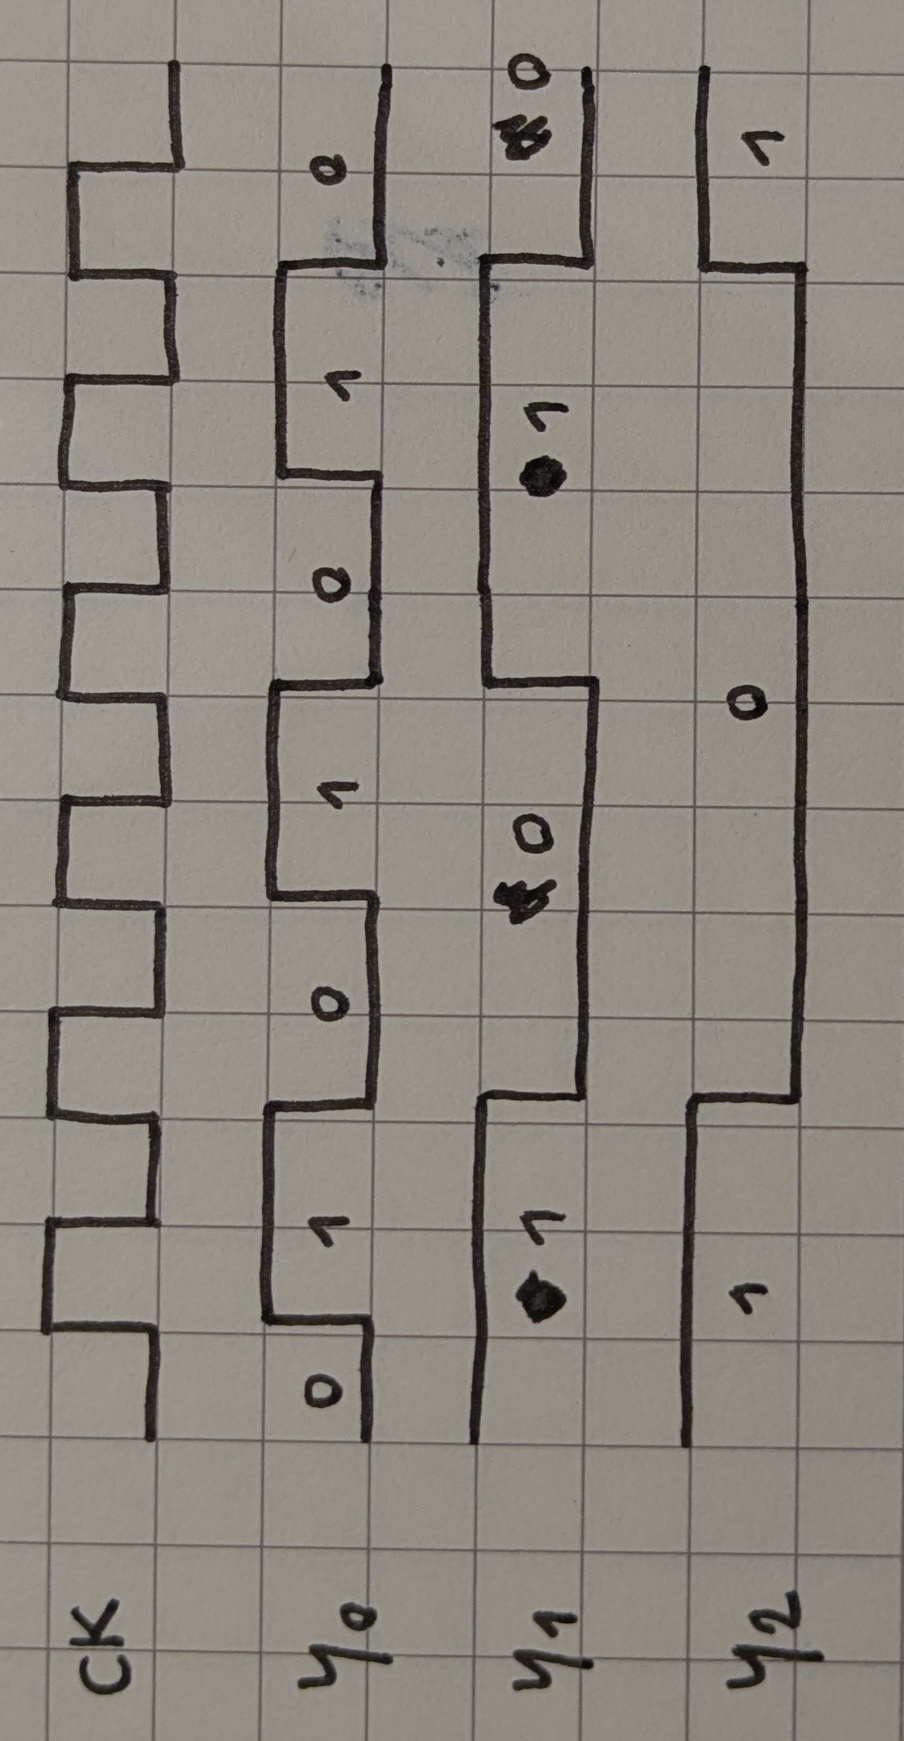 CK
y0 0 1 0 1 0 1 0
y1 1 0 1 0
y2 1 0 1